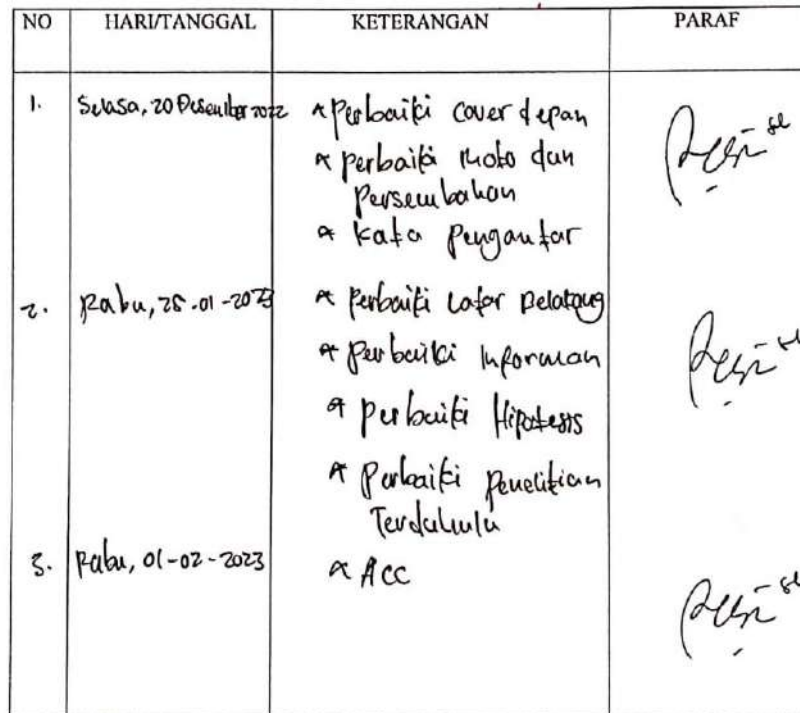 NO HARI/TANGGAL KETERANGAN PARAF
1. Selasa, 20 Desember 2022 Perbaiki cover depan
perbaiki Moto dan
Persembahan
kata Pengantar
2. Rabu, 25-01-2023 Perbaiki Latar Belakang
Perbaiki Informan
perbaiki Hipotesis
Perbaiki Penelitian
Terdahulu
3. Rabu, 01-02-2023 Acc